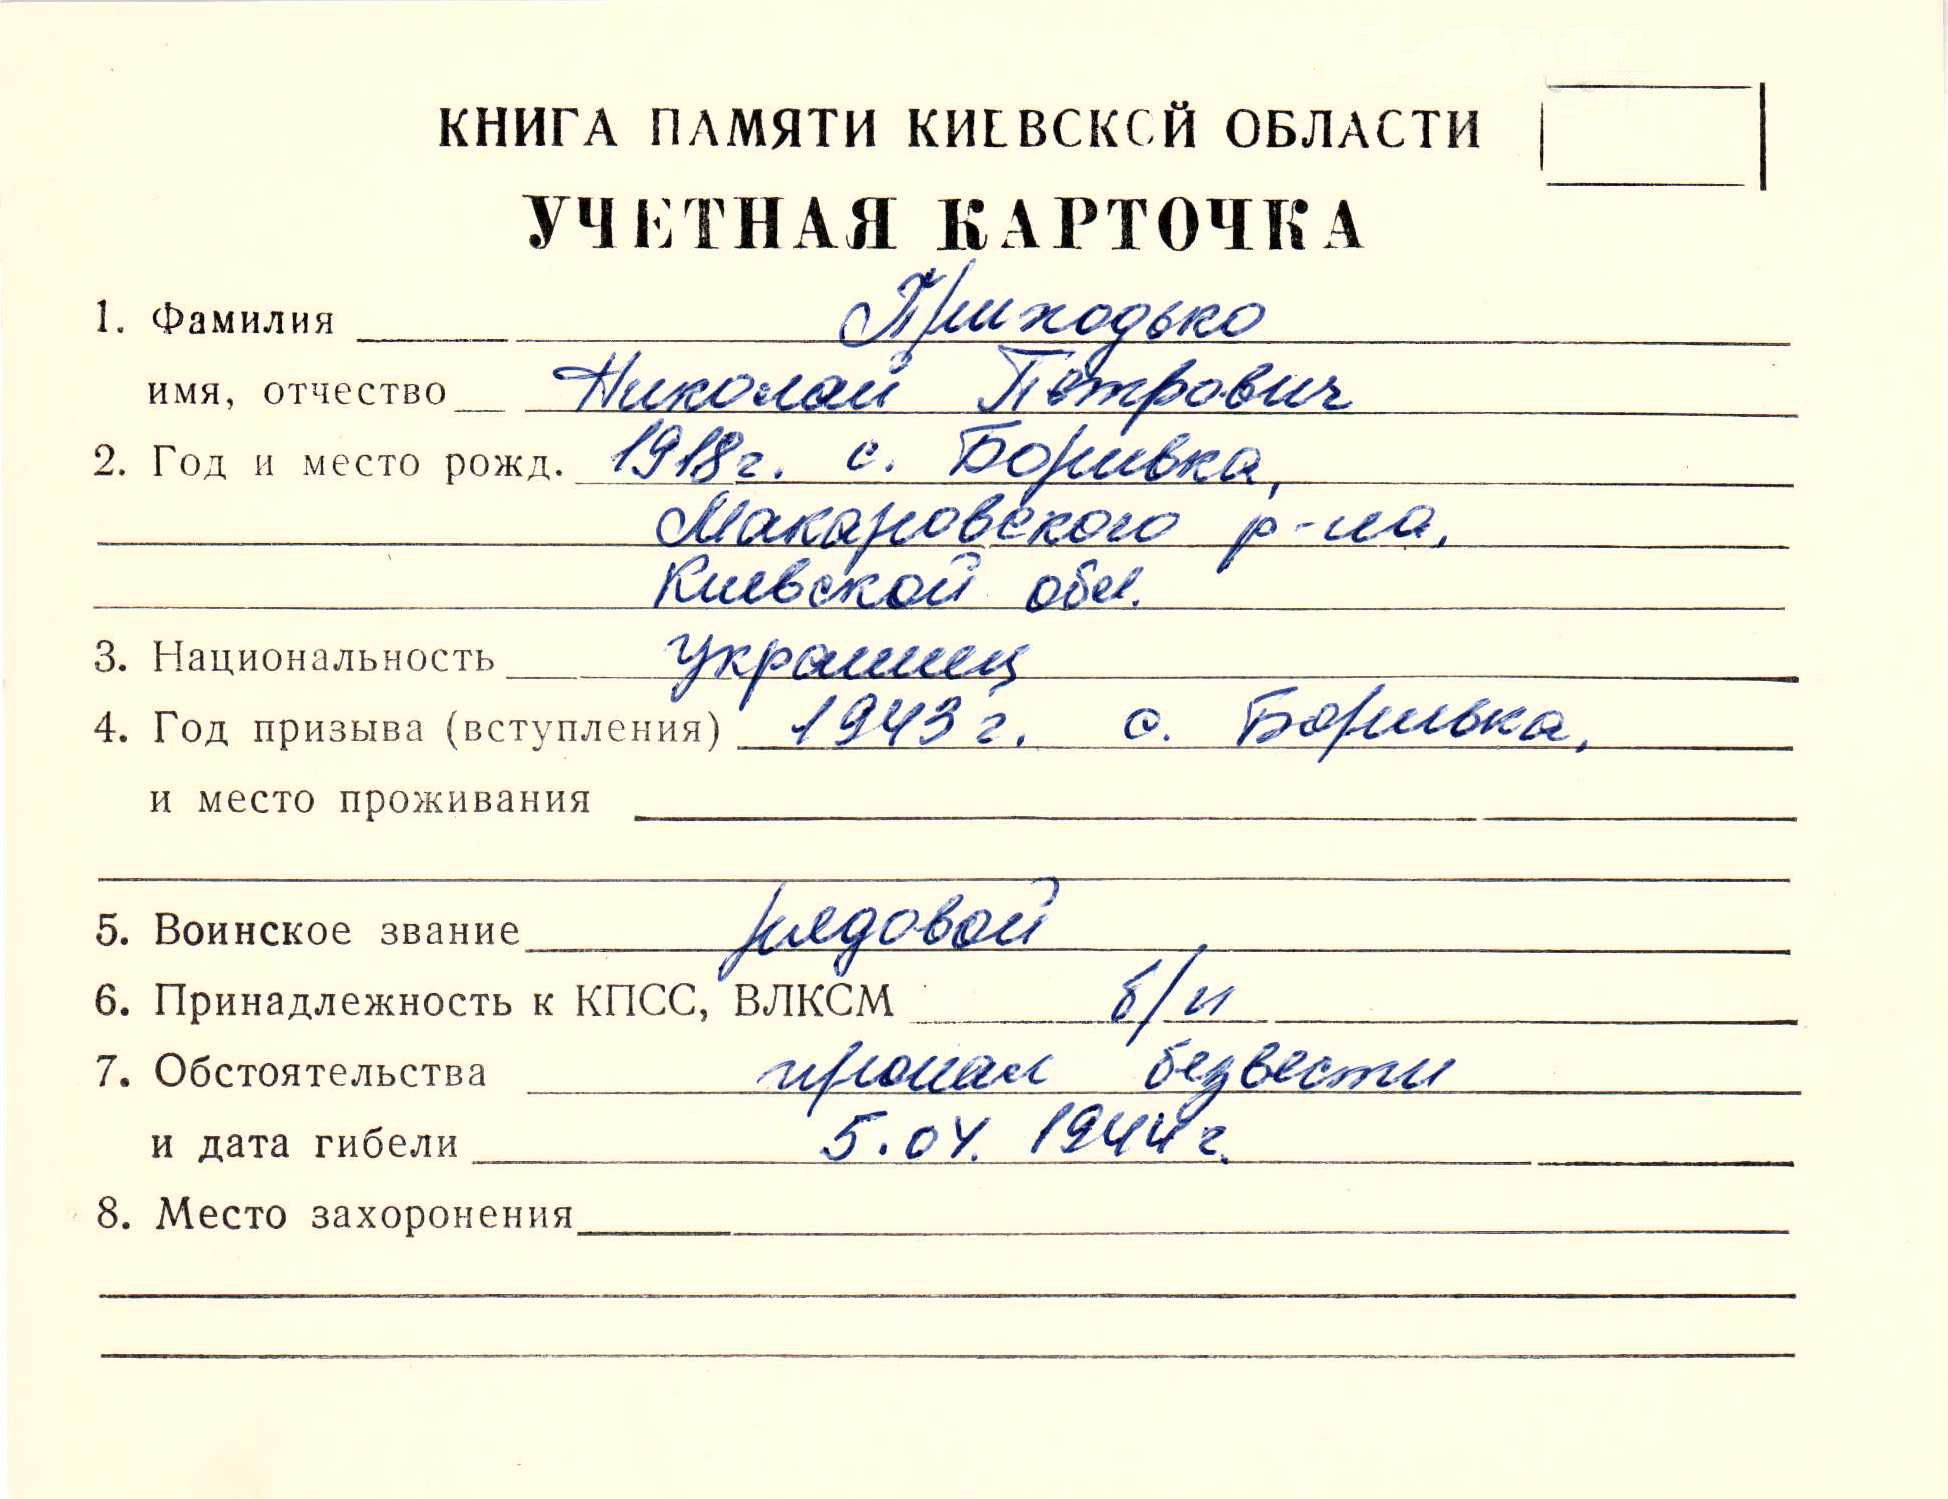 КНИГА ПАМЯТИ КИЕВСКОЙ ОБЛАСТИ
УЧЕТНАЯ КАРТОЧКА
1. Фамилия Приходько
имя, отчество Николай Петрович
2. Год и место рожд. 1918г. с. Боривка,
Макаровского р-на,
Киевской обл.
3. Национальность украинец
4. Год призыва (вступления) 1943г. с. Боривка,
и место проживания
5. Воинское звание рядовой
6. Принадлежность к КПСС, ВЛКСМ б/п
7. Обстоятельства пропал безвести
и дата гибели 5.04. 1944г.
8. Место захоронения